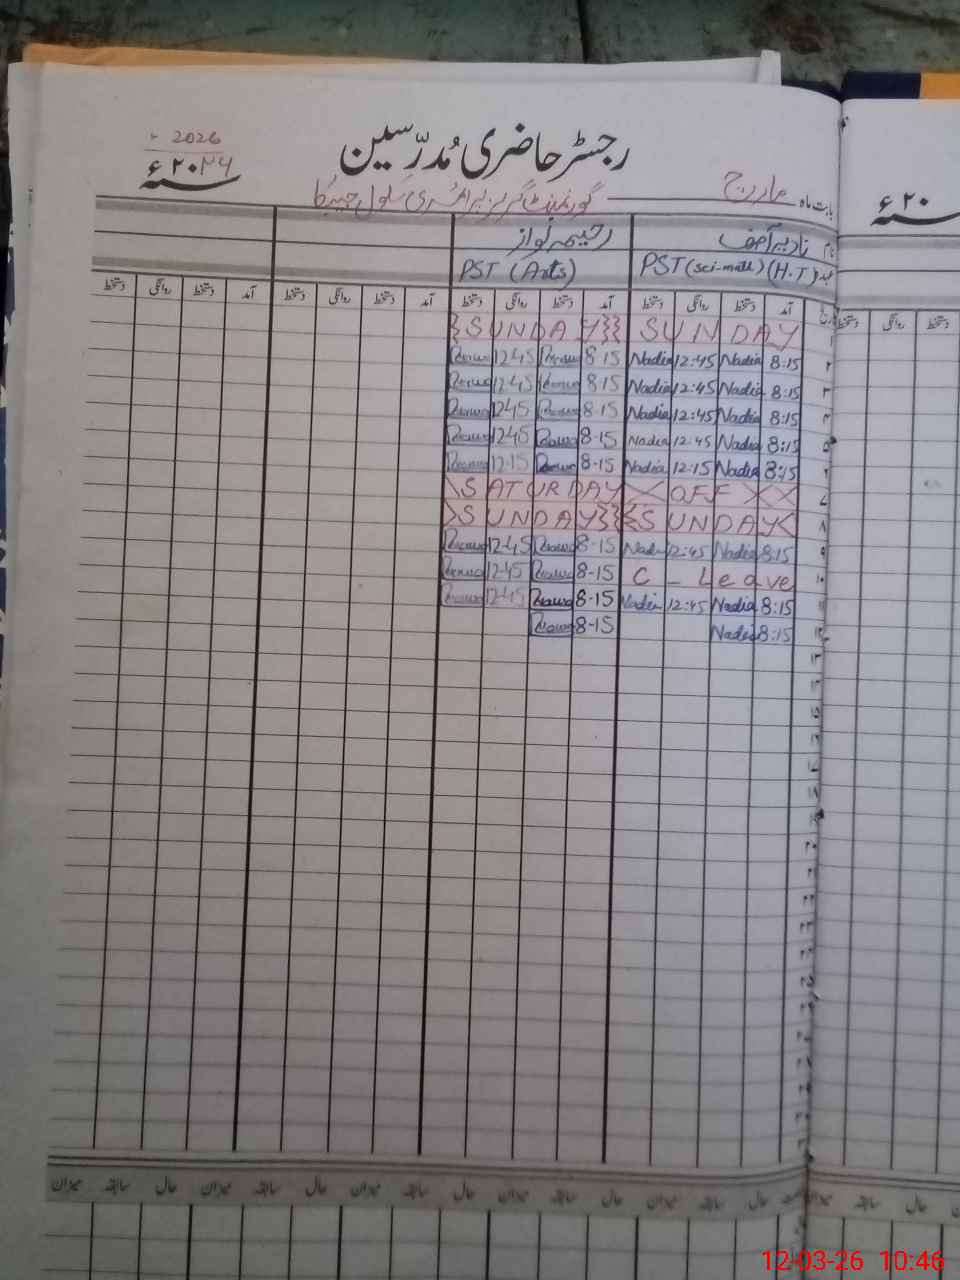 2026
رجسٹر حاضری مُدرّسین
سنہ ۲۰۲۶ء
بابت ماہ مارچ گورنمنٹ گرلز پرائمری سکول
نام نادیہ آصف رحیمہ نواز
عہدہ PST (sci-math) (H.T) PST (Arts)
تاریخ آمد دستخط روانگی دستخط آمد دستخط روانگی دستخط آمد دستخط روانگی دستخط آمد دستخط روانگی دستخط
۱ SUNDAY SUNDAY
۲ 8:15 Nadia 12:45 Nadia 8-15 12-45
۳ 8:15 Nadia 12:45 Nadia 8-15 12-45
۴ 8:15 Nadia 12:45 Nadia 8-15 12-45
۵ 8:15 Nadia 12:45 Nadia 8-15 12-45
۶ 8:15 Nadia 12:15 Nadia 8-15 12-15
۷ SATURDAY OFF
۸ SUNDAY SUNDAY
۹ 8:15 Nadia 12:45 Nadia 8-15 12-45
۱۰ C - Leave 8-15 12-45
۱۱ 8:15 Nadia 12:45 Nadia 8-15 12-45
۱۲ 8:15 Nadia 8-15
۱۳
۱۴
۱۵
۱۶
۱۷
۱۸
۱۹
۲۰
حال سابقہ میزان حال سابقہ میزان حال سابقہ میزان حال سابقہ میزان
سنہ ۲۰ء
دستخط روانگی دستخط
میزان سابقہ حال
12-03-26 10:46